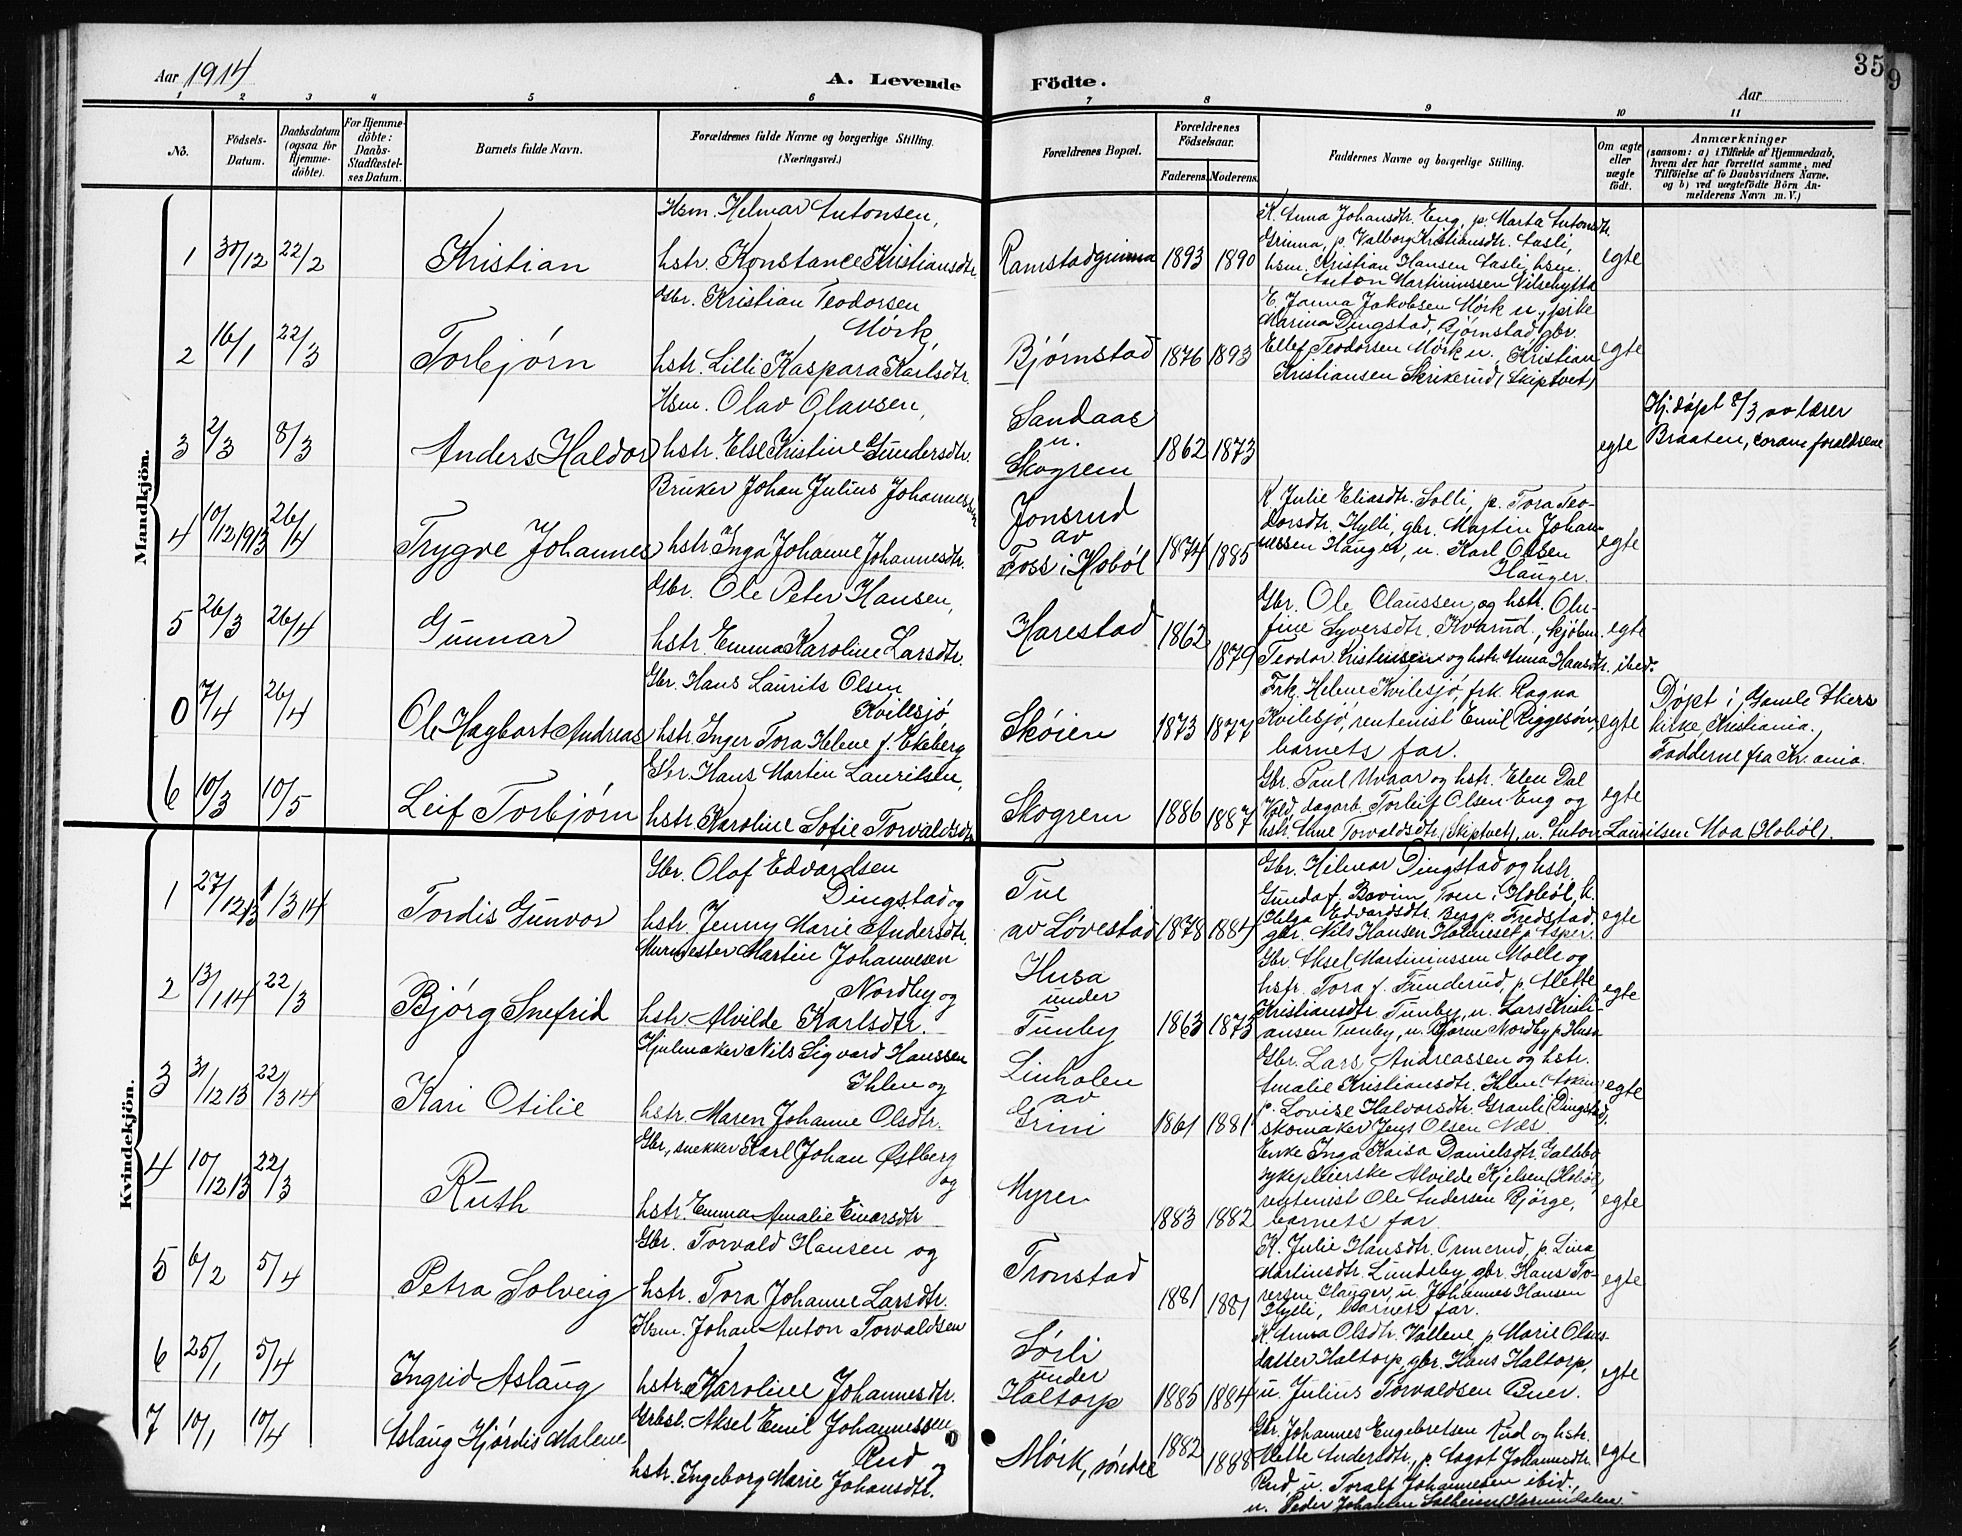 Aar 1914
A. Levende Födte.
35
9
Aar
1 2 3 4 5 6 7 8 9 10 11
No.
Födsels-Datum.
Daabsdatum (ogsaa for Hjemme-döbte).
For Hjemme-döbte: Daabs-Stadfæstel-ses Datum.
Barnets fulde Navn.
Forældrenes fulde Navne og borgerlige Stilling. (Næringsvei.)
Forældrenes Bopæl.
Forældrenes Födselsaar.
Faderens. Moderens.
Faddernes Navne og borgerlige Stilling.
Om ægte eller uægte födt.
Anmærkninger
(saasom: a) i Tilfælde af Hjemmedaab, hvem der har forrettet samme, med Tilföielse af to Daabsvidners Navne, og b) ved uægtefödte Börn An-melderens Navn m. V.)
Mandkjön.
1 30/12 22/2 Kristian
Hsm. Helmar Antonsen,
hstr. Konstance Kristiansdtr.
Ramstadgrinna 1893 1890
K. Anna Johansdtr. Eng, p. Marta Antonsdtr.
Grinna, p. Valborg Kristiansdtr. Aasli,
hsm. Kristian Hansen Aasli, hsm.
Anton Martiniussen Nilsehytta
egte
2 16/1 22/3 Torbjørn
Gbr. Kristian Teodorsen
Mørk,
hstr. Lilli Kaspara Karlsdtr.
Bjørnstad 1876 1893
E. Janna Jakobsen Mørk u., pike
Marina Dingstad, Bjørnstad, gbr.
Ellef Teodorsen Mørk u., Kristian
Kristiansen Skrikerud (Skiptvet)
egte
3 2/3 8/3 Anders Haldor
Hsm. Olav Olausen,
hstr. Else Kristine Gundersdtr.
Sandaas
u.
Skogrem 1862 1873
egte
Hj. døpt 8/3 av lærer
Braaten, coram foraldrene
4 10/12 1913 26/4 Trygve Johannes
Bruker Johan Julius Johannessen
hstr. Inga Johanne Johannesdtr.
Jonsrud
av
Foss i Hobøl 1874 1885
K. Julie Eliasdtr. Solli, p. Tora Teo-
dorsdtr. Hylli, gbr. Martin Johan-
nessen Hauger, u. Karl Olsen
Hauger.
egte
5 26/3 26/4 Gunnar
Gbr. Ole Peter Hansen,
hstr. Emma Karoline Larsdtr.
Harestad 1862 1879
Gbr. Ole Claussen og hstr. Olu-
fine Syversdtr. Kvarud, Skjøben.
Teodor Kristensen og hstr. Anna Hansdtr. ibid.
egte
0 7/4 26/4 Ole Hagbart Andreas
Gbr. Hans Laurits Olsen
Kvilesjø,
hstr. Inger Tora Helene f. Ekeberg
Skøien 1873 1877
Frk. Helene Kvilesjø, frk. Ragna
Kvilesjø, rentenist Emil Riggesøn,
barnets far.
egte
Døpt i Gamle Akers
kirke Kristiania.
Fadderne fra Kr.ania.
6 10/3 10/5 Leif Torbjørn
Gbr. Hans Martin Lauritsen,
hstr. Karoline Sofie Torvaldsdtr.
Skogrem 1886 1887
Gbr. Paul Hvaar og hstr. Elen Dal
Vold, dagarb. Torleif Olsen Eng og
hstr. Anne Torvaldsdtr. (Skiptvet), u. Anton Lauritsen Moa (Hobøl).
egte
Kvindekjön.
1 27/12 13 1/3 14 Tordis Gunvor
Gbr. Olaf Edvardsen
Dingstad og
hstr. Jenny Marie Andersdtr.
Tue
av Løvestad 1878 1884
Gbr. Hilmar Dingstad og hstr.
Gunda f. Bovim Tuen i Hobøl, k.
Helga Edvardsdtr. Berg p. Fredstad,
gbr. Nils Hansen Holmeset p. Asper.
egte
2 13/1 14 22/3 Bjørg Snefrid
Murmester Martin Johannesen
Nordby og
hstr. Alvilde Karlsdtr.
Husa
under
Tunby 1863 1873
Gbr. Aksel Martiniussen Molle og
hstr. Tora f. Funderud, p. Alette
Kristiansdtr. Tunby, u. Lars Kristi-
ansen Tunby, u. Bjarne Nordby p. Husa
egte
3 31/12 13 22/3 14 Kari Otilie
Hjulmaker Nils Sigvard Hanssen
Ihlen og
hstr. Maren Johanne Olsdtr.
Linholen
av
Grini 1861 1881
Gbr. Lars Andreassen og hstr.
Amalie Kristiansdtr. Ihlen (Askim)
p. Lovise Halvorsdtr. Granli (Dingstad,
skomaker Jens Olsen Næs.
egte
4 10/12 13 22/3 Ruth
Gbr., snekker Karl Johan Østberg
og
hstr. Emma Amalie Einarsdtr
Myrer 1883 1882
Enke Inga Kaisa Danielsdtr. Galtebo
sykepleierske Alvilde Kjelsen (Hobøl)
rentenist Ole Andersen Bjørge,
barnets far.
egte
5 6/2 5/4 Petra Solveig
Gbr. Torvald Hansen og
hstr. Tora Johanne Larsdtr.
Tronstad 1881 1881
K. Julie Hansdtr. Ormerud, p. Lina
Martinsdtr. Lundeby, gbr. Hans To-
rersen Hauger, u. Johannes Hansen
Hylli, barnets far.
egte
6 25/1 5/4 Ingrid Aslaug
Hsm. Johan Anton Torvaldsen
hstr. Karoline Johannesdtr.
Sørli
under
Haltorp 1885 1884
K. Anna Olsdtr. Vallene, p. Marie Olsens
datter Haltorp, gbr. Hans Haltorp,
u. Julius Torvaldsen Buer.
egte
7 10/1 10/4 Aslaug Hjørdis Malene
Grbst. Aksel Emil Johannessen
Rud og
hstr. Ingeborg Marie Johansdtr.
Mørk, søndre 1882 1888
Gbr. Johannes Engebretsen Rud og hstr.
Mette Andersdtr., p. Aagot Johannesdtr.
Rud, u. Toralf Johannesen ibid.,
u. Peder Johansen Solheim
egte